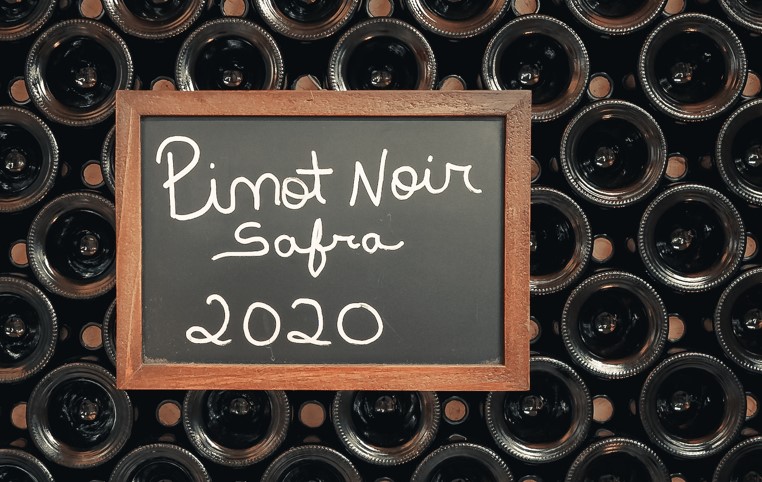 Pinot Noir
Safra
2020